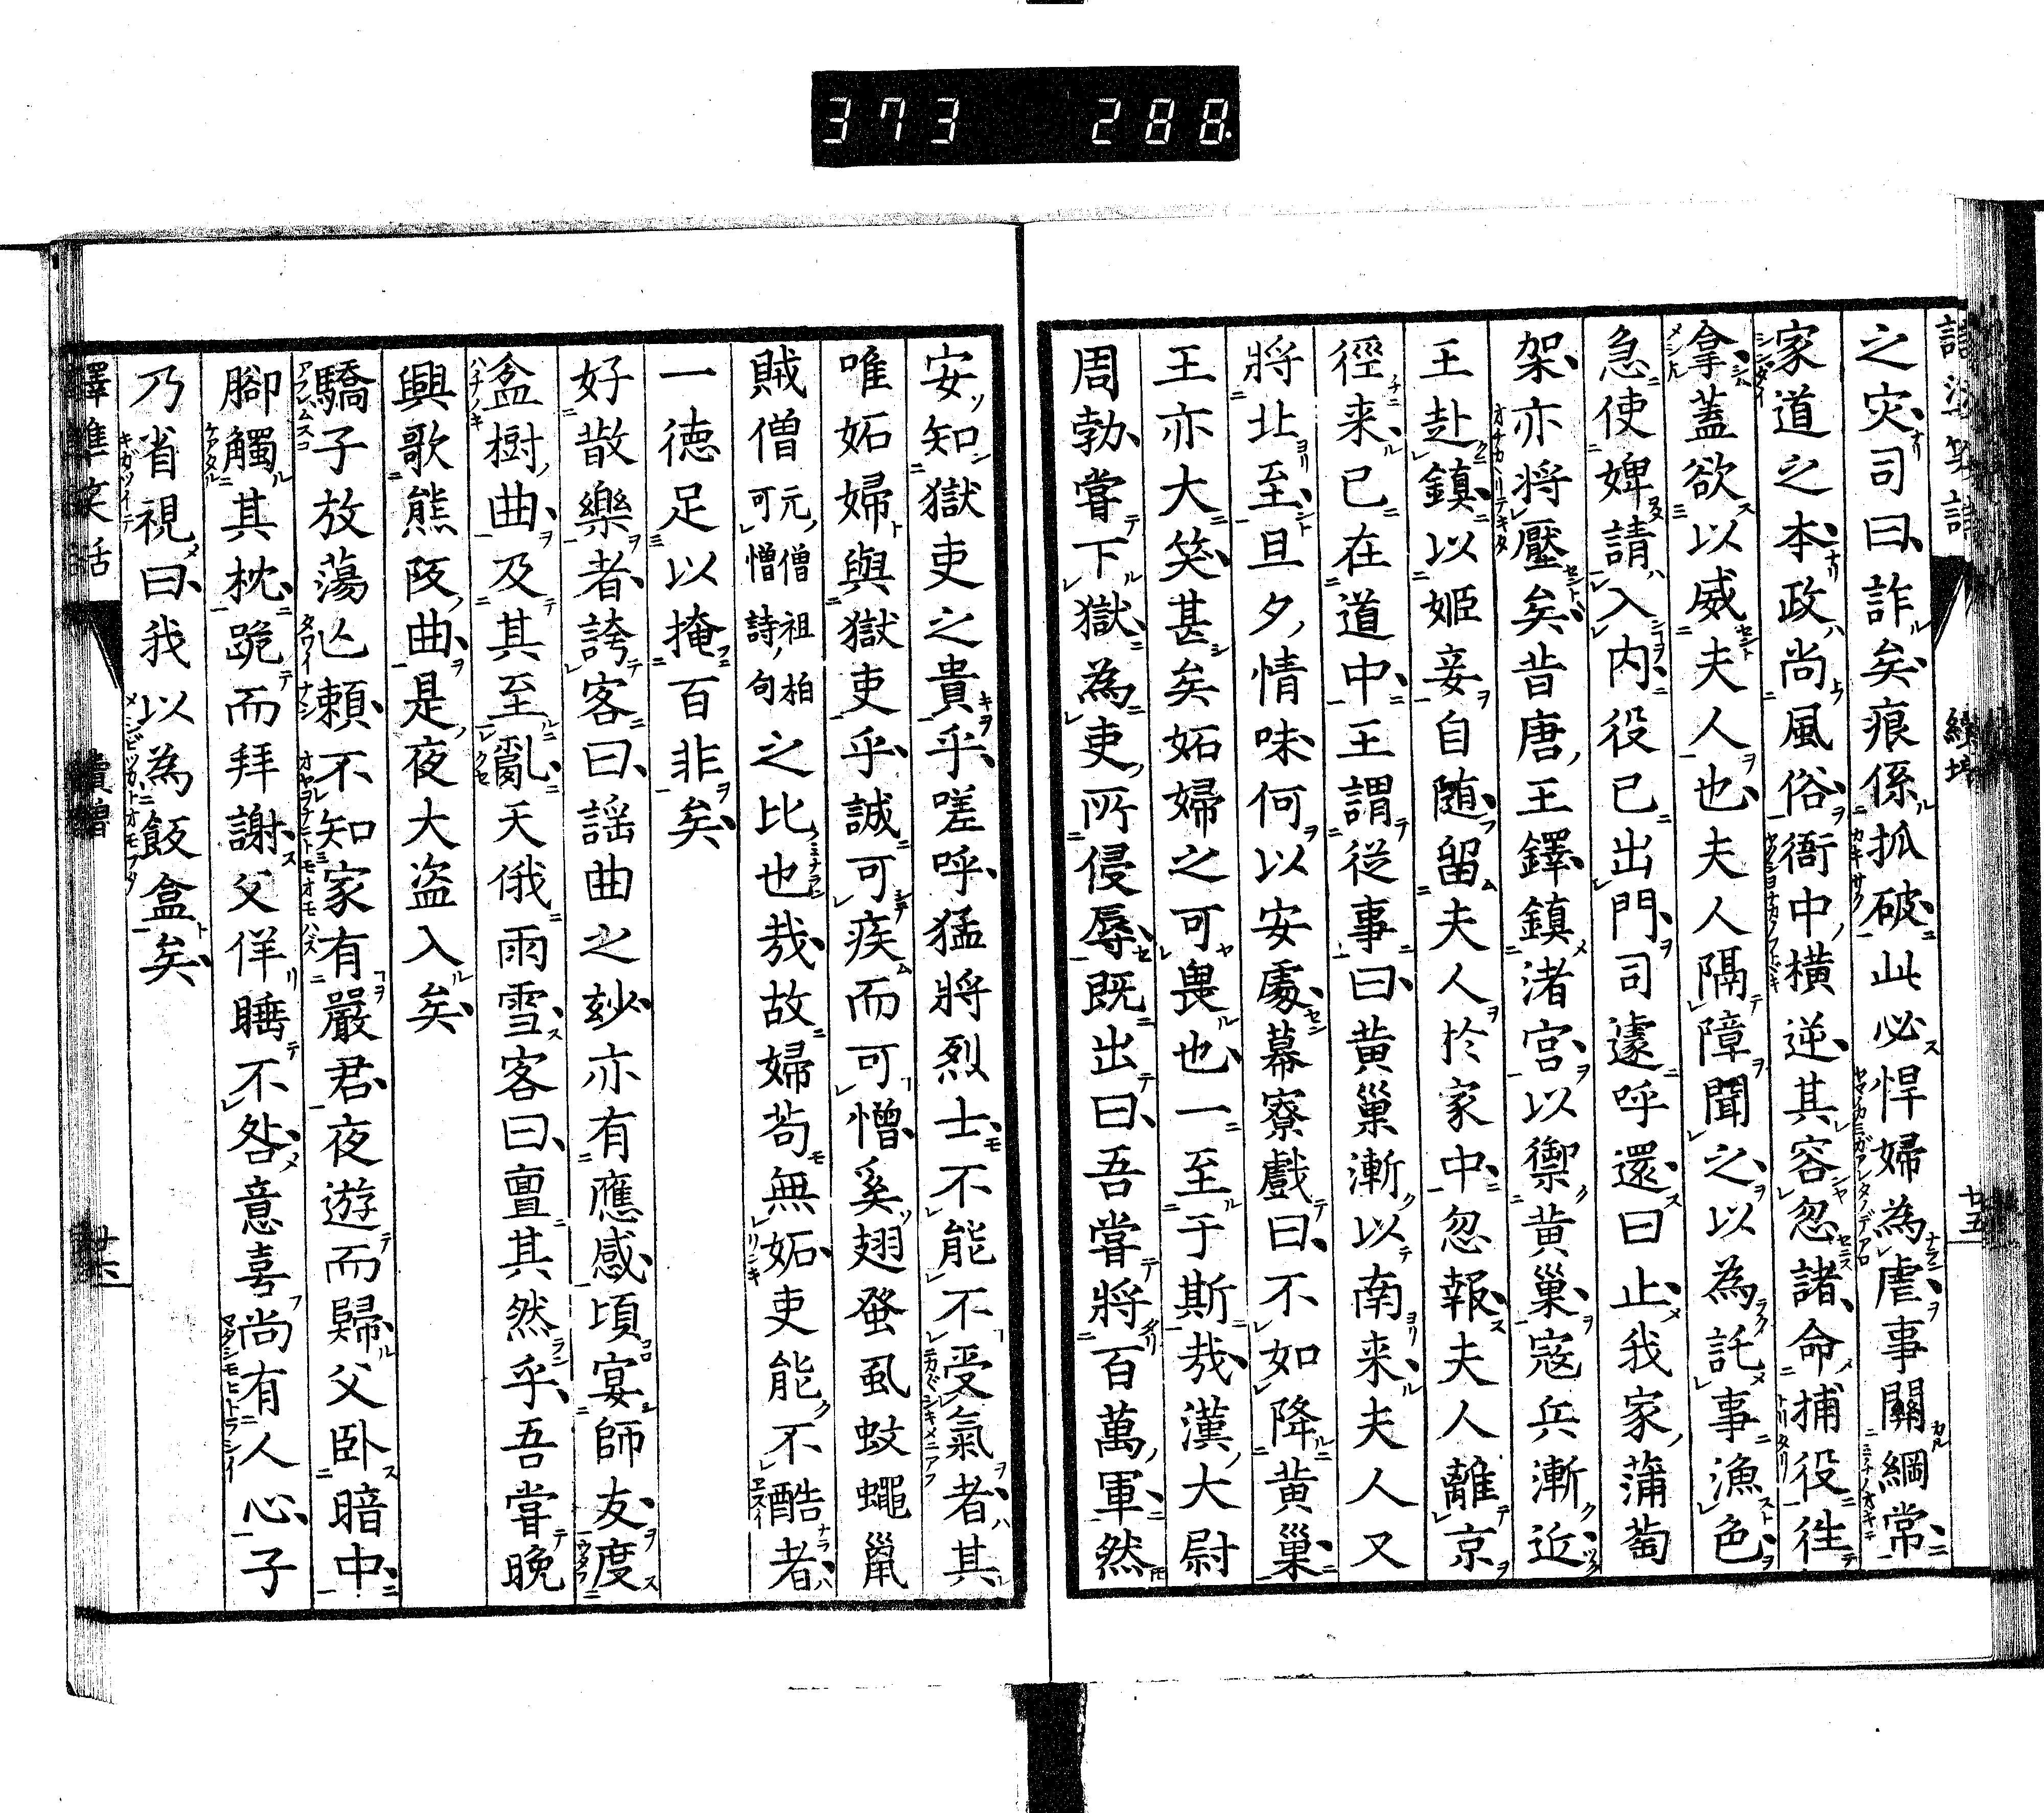 373 288
之灾司曰詐矣痕係抓破此必悍婦為虐事關綱常
家道之本政尚風俗衙中橫逆其容忽諸命捕役徃
拿蓋欲以威夫人也夫人隔障聞之以為託事漁色
急使婢請入内役已出門司遽呼還曰止我家蒲萄
架亦将壓矣昔唐王鐸鎮渚宮以禦黄巢寇兵漸近
王赴鎮以姬妾自随留夫人於家中忽報夫人離京
徑来已在道中王謂従事曰黄巢漸以南来夫人又
將北至旦夕情味何以安處幕寮戲曰不如降黄巢
王亦大笑甚矣妬婦之可畏也一至于斯哉漢大尉
周勃嘗下獄為吏所侵辱既出曰吾嘗將百萬軍然
安知獄吏之貴乎嗟呼猛將烈士不能不受氣者其
唯妬婦與獄吏乎誠可疾而可憎奚翅蚤虱蚊蠅鼠
賊僧元僧祖柏可憎詩句之比也哉故婦苟無妬吏能不酷者
一徳足以掩百非矣
好散樂者誇客曰謡曲之玅亦有應感頃宴師友度
盆樹曲及其至亂天俄雨雪客曰亶其然乎吾嘗晩
興歌熊阪曲是夜大盗入矣
驕子放蕩亾頼不知家有嚴君夜遊而歸父卧暗中
腳觸其枕跪而拜謝父佯睡不咎意喜尚有人心子
乃省視曰我以為飯盒矣